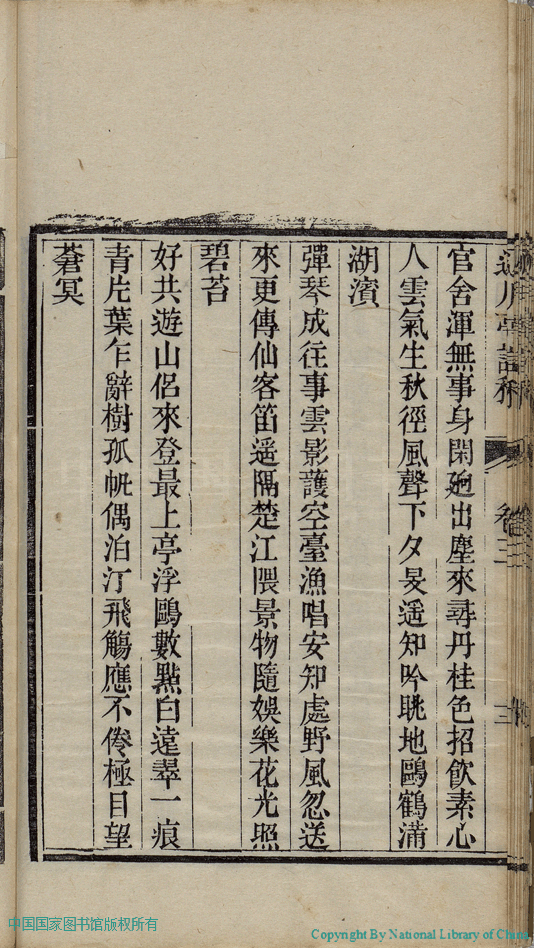 官舍渾無事身閑廻出塵來尋丹桂色招飲素心
人雲氣生秋徑風聲下夕旻遥知吟眺地鷗鶴滿
湖濱
彈琴成往事雲影護空臺漁唱安知處野風忽送
來更傳仙客笛遥隔楚江隈景物隨娛樂花光照
碧苔
好共遊山侣來登最上亭浮鷗數點白遠翠一痕
青片葉乍辭樹孤帆偶泊汀飛觴應不倦極目望
蒼冥
卷三
三
中国国家图书馆版权所有
Copyright By National Library of China